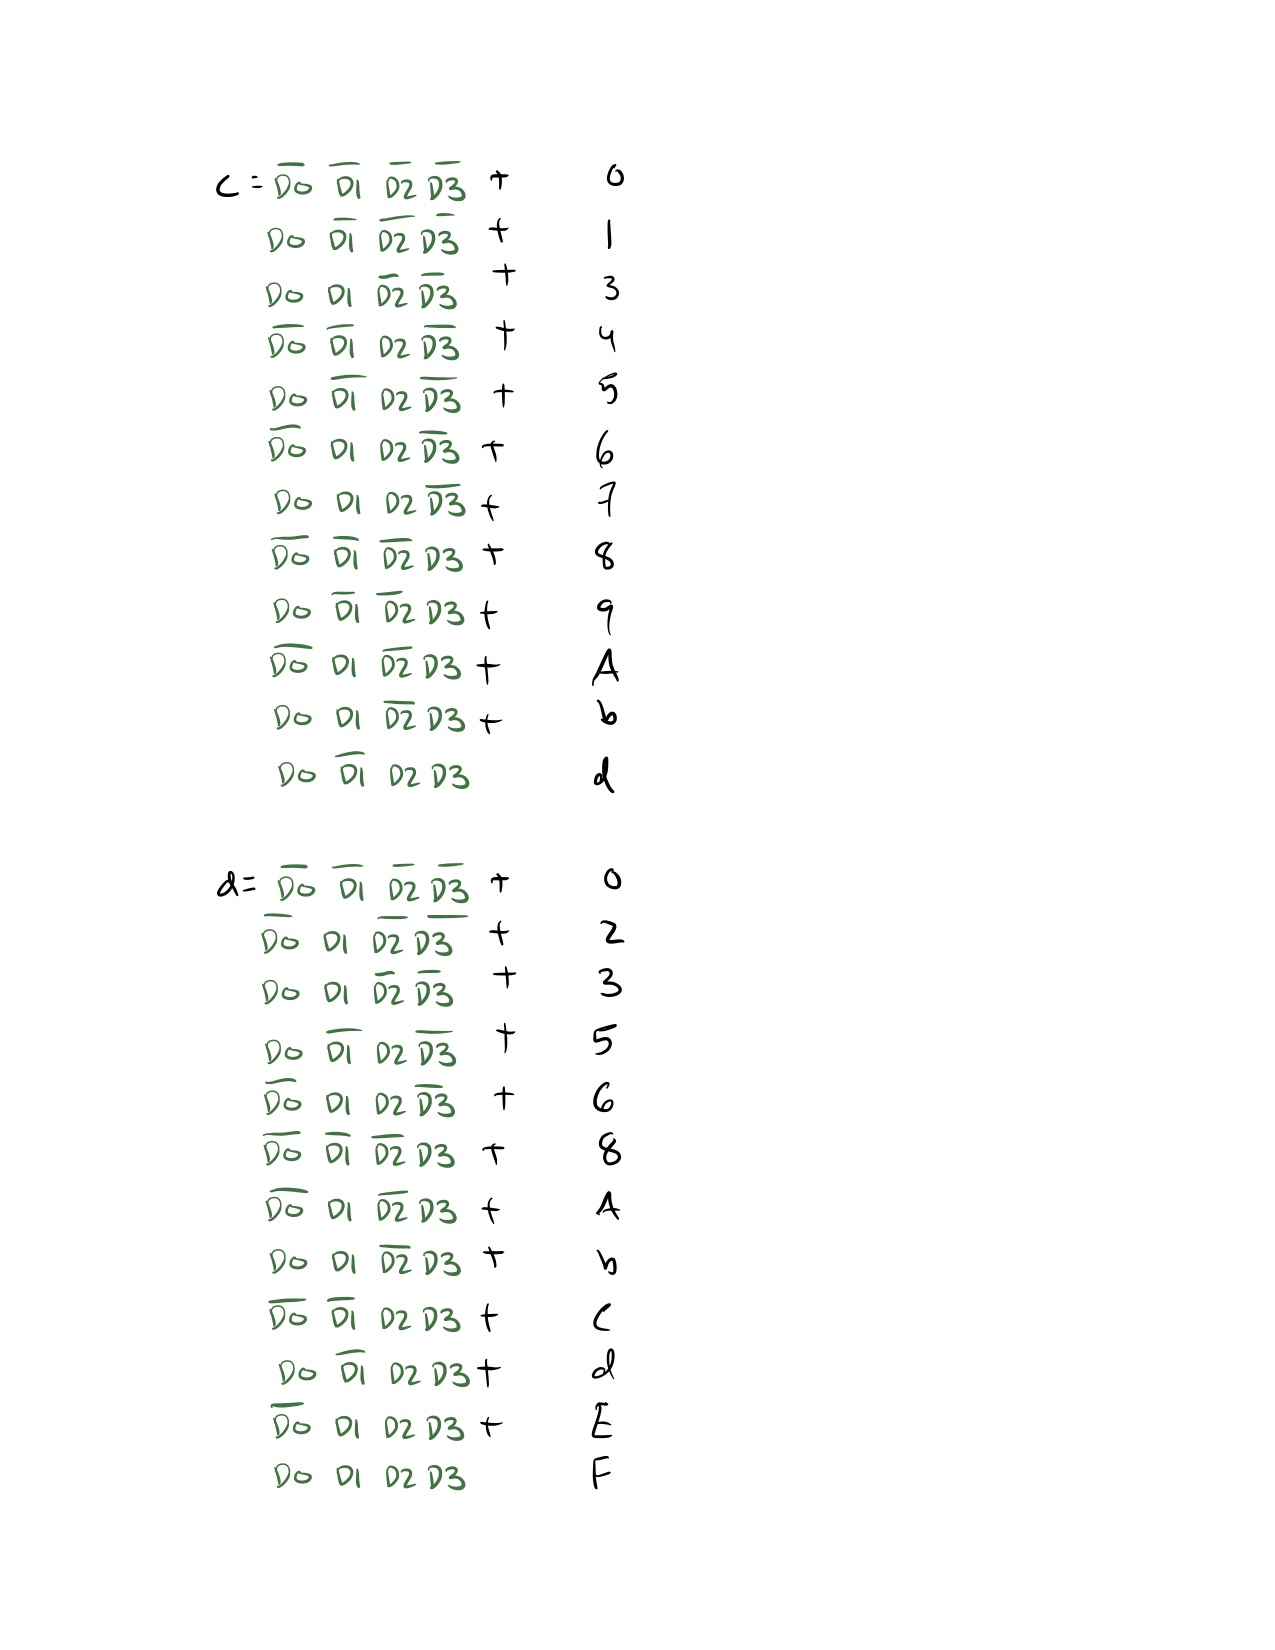 c = D̅0̅ D̅1̅ D̅2̅ D̅3̅ + 0
D0 D̅1̅ D̅2̅ D̅3̅ + 1
D0 D1 D̅2̅ D̅3̅ + 3
D̅0̅ D̅1̅ D2 D̅3̅ + 4
D0 D̅1̅ D2 D̅3̅ + 5
D̅0̅ D1 D2 D̅3̅ + 6
D0 D1 D2 D̅3̅ + 7
D̅0̅ D̅1̅ D̅2̅ D3 + 8
D0 D̅1̅ D̅2̅ D3 + 9
D̅0̅ D1 D̅2̅ D3 + A
D0 D1 D̅2̅ D3 + b
D0 D̅1̅ D2 D3 d
d = D̅0̅ D̅1̅ D̅2̅ D̅3̅ + 0
D̅0̅ D1 D̅2̅ D̅3̅ + 2
D0 D1 D̅2̅ D̅3̅ + 3
D0 D̅1̅ D2 D̅3̅ + 5
D̅0̅ D1 D2 D̅3̅ + 6
D̅0̅ D̅1̅ D̅2̅ D3 + 8
D̅0̅ D1 D̅2̅ D3 + A
D0 D1 D̅2̅ D3 + b
D̅0̅ D̅1̅ D2 D3 + C
D0 D̅1̅ D2 D3 + d
D̅0̅ D1 D2 D3 + E
D0 D1 D2 D3 F